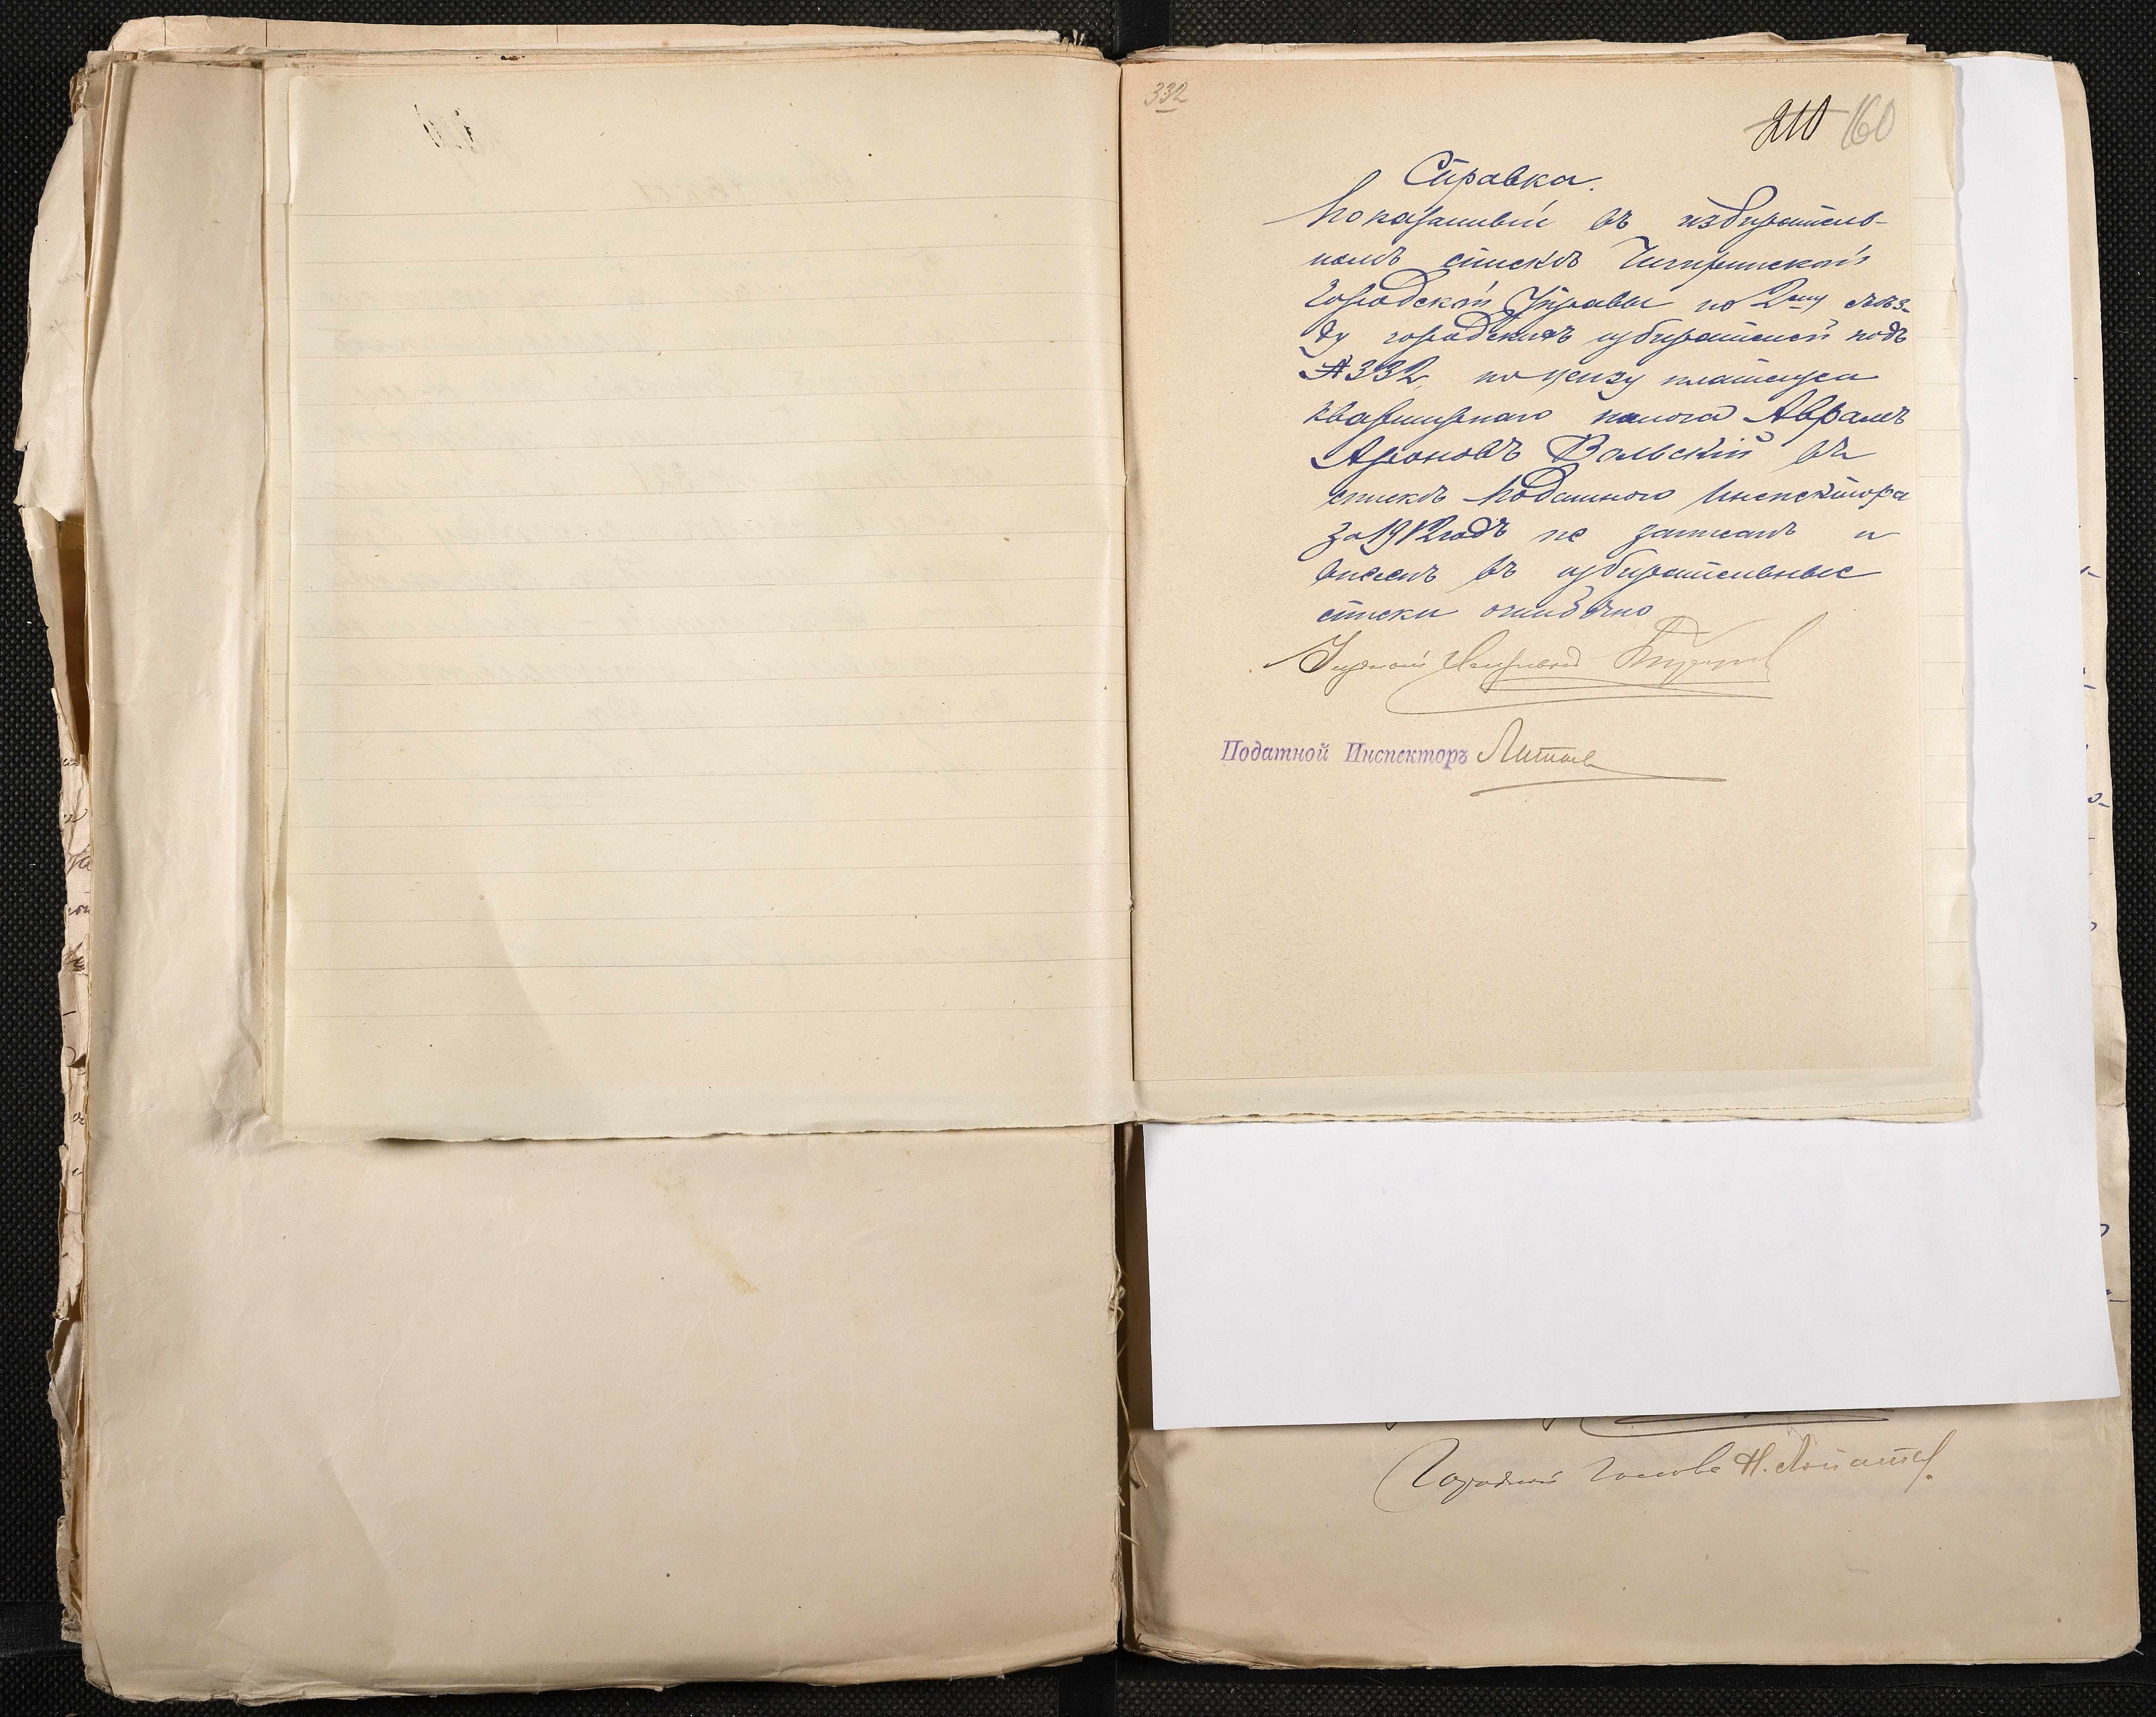 332
210 160
Справка.
Показанный въ избиратель-
номъ спискѣ Чигиринской
Городской Управы по 2му съѣз-
ду городскихъ избирателей подъ
№ 332 по цензу плательщика
квартирнаго налога Аврамъ
Ароновъ Вольскій въ
спискѣ Податного Инспектора
за 1912 годъ не записанъ и
внесенъ въ избирательные
списки ошибочно
Податной Инспекторъ
Городской Голова Н.